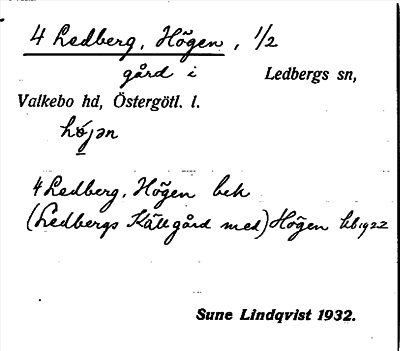 4 Ledberg, Högen, 1/2
gård i Ledbergs sn,
Valkebo hd, Östergötl. l.
hö́jən
4 Ledberg, Högen bek
(Ledbergs Källgård med) Högen kb 1922
Sune Lindqvist 1932.